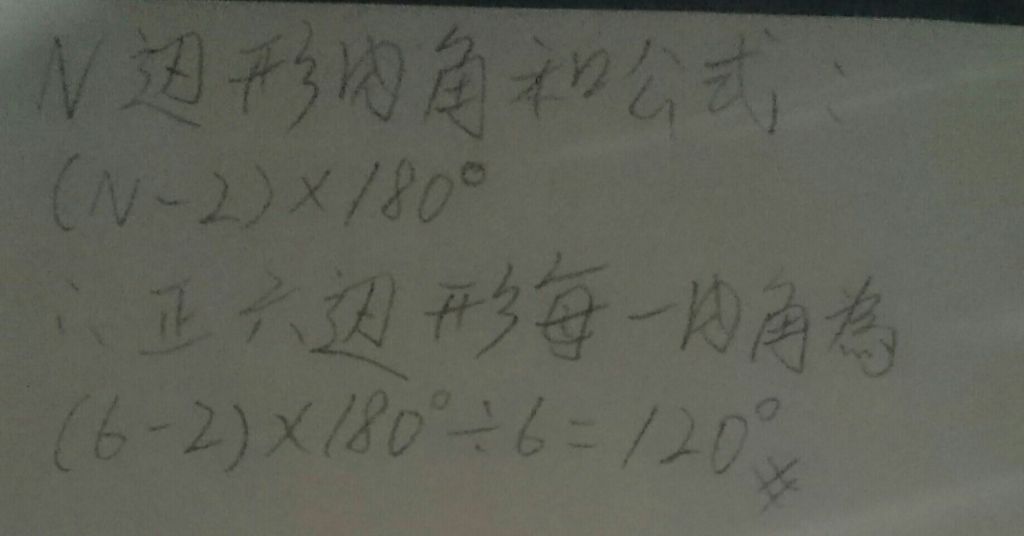 N边形内角和公式：
(N-2)×180°
∴正六边形每一内角為
(6-2)×180°÷6=120°※